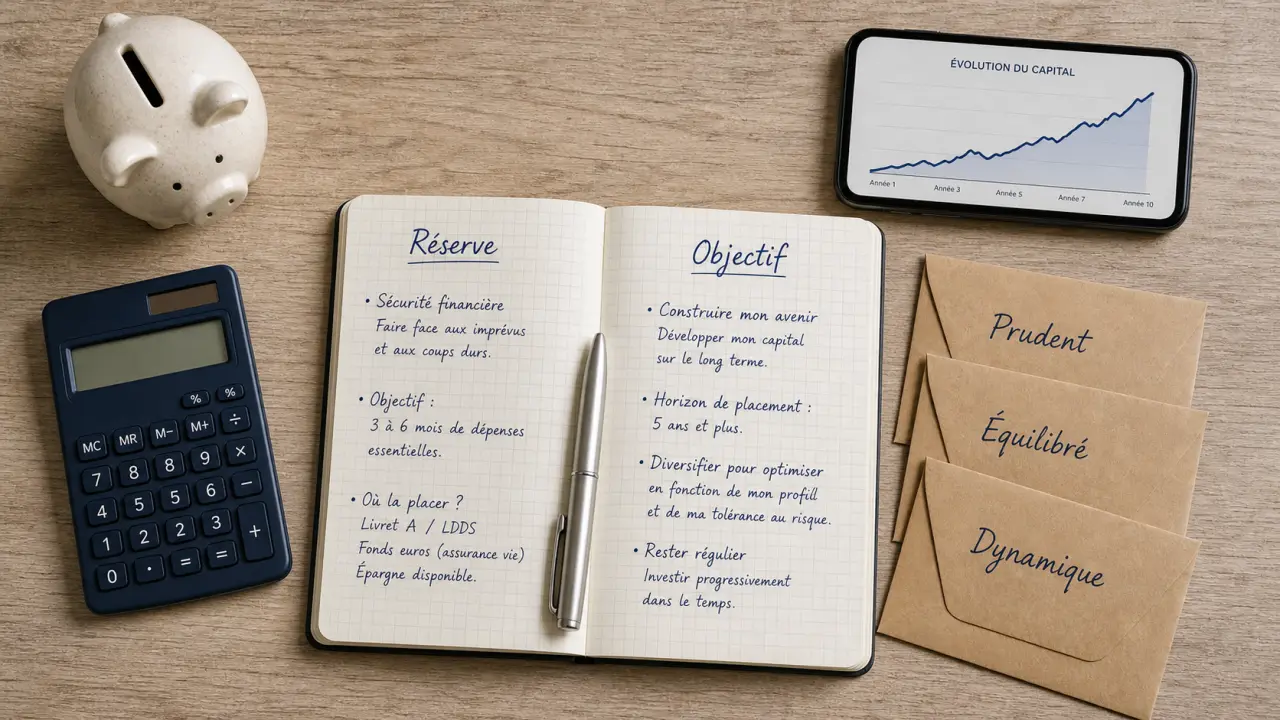 ÉVOLUTION DU CAPITAL
Année 1
Année 3
Année 5
Année 7
Année 10
Réserve
• Sécurité financière
Faire face aux imprévus
et aux coups durs.
• Objectif :
3 à 6 mois de dépenses
essentielles.
• Où la placer ?
Livret A / LDDS
Fonds euros (assurance vie)
Épargne disponible.
Objectif
• Construire mon avenir
Développer mon capital
sur le long terme.
• Horizon de placement :
5 ans et plus.
• Diversifier pour optimiser
en fonction de mon profill
et de ma tolérance au risque.
• Rester régulier
Investir progressivement
dans le temps.
Prudent
Équilibré
Dynamique
% %
MC MR M- M+ ÷
7 8 8 9 ×
4 5 5 6 −
1 2 2 3 +
0 · = =